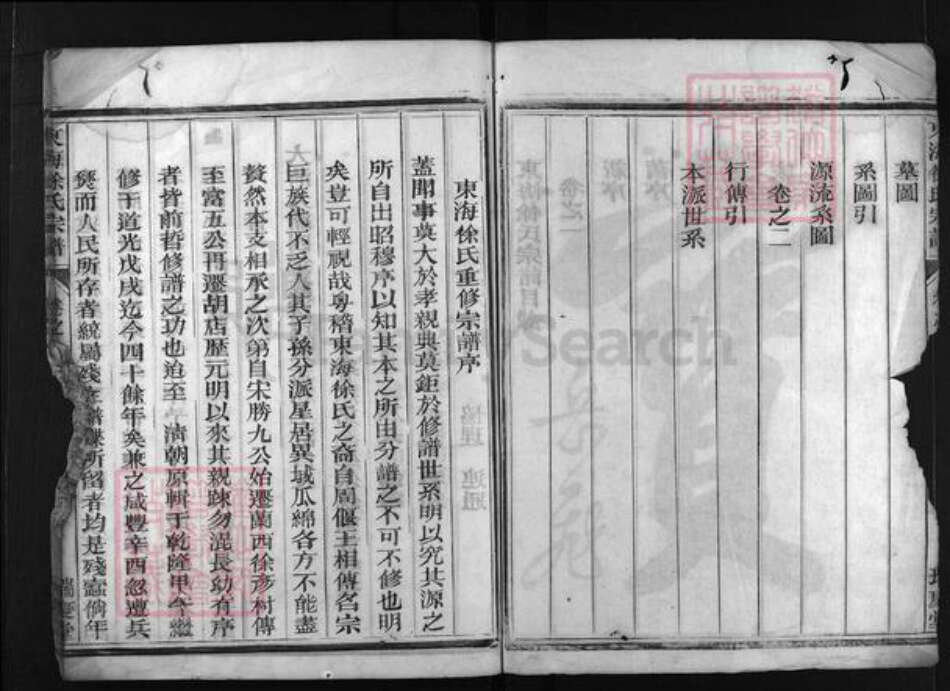 墓圖
系圖引
源流系圖
卷之二
行傳引
本派世系
東海徐氏重修宗譜序
蓋聞事莫大於孝親典莫鉅於修譜世系明以究其源之
所自出昭穆序以知其本之所由分譜之不可不修也明
矣豈可輕視哉粵稽東海徐氏之裔自周偃王相傳名宗
巨族代不乏人其子孫分派星居異域瓜綿各方不能盡
贅然本支相承之次第自宋勝九公始遷蘭西徐彥村傳
至富五公再遷胡店歷元明以來其親踈勿混長幼有序
者皆前哲修譜之功也迨至 清朝原輯于乾隆甲午繼
修于道光戊戌迄今四十餘年矣兼之咸豐辛酉忽遭兵
燹而人民所存者統屬殘 譜牒所留者均是殘蠧倘年
東海徐氏宗譜
瑞慶堂
Search